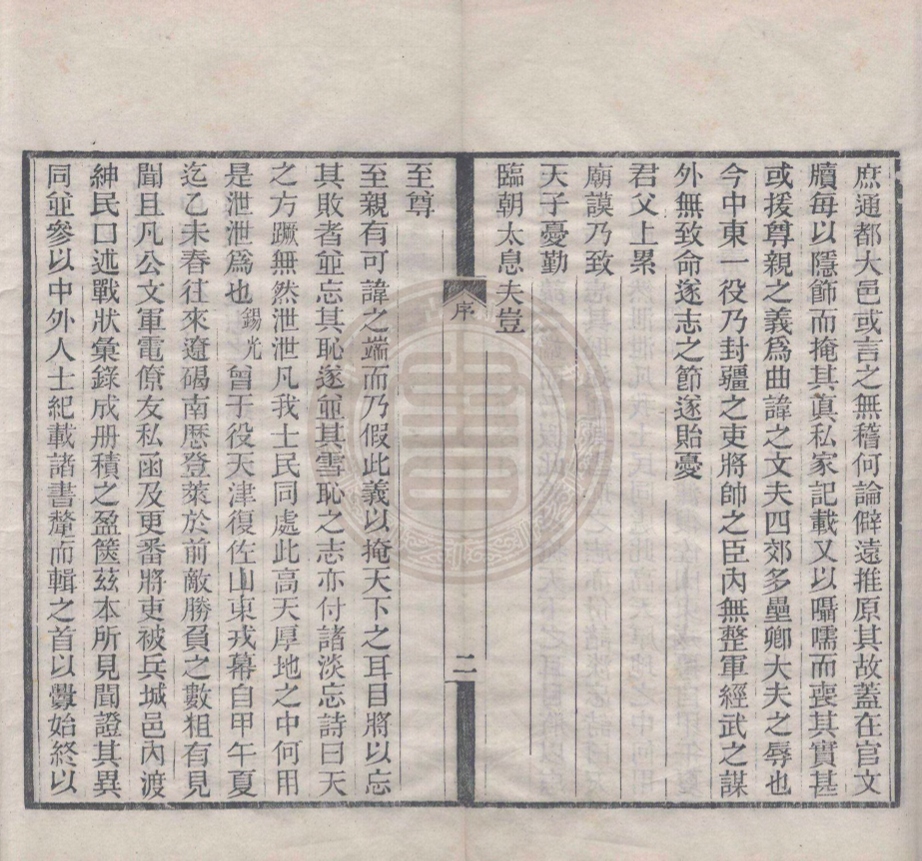 庶通都大邑或言之無稽何論僻遠推原其故蓋在官文
牘每以隱飾而掩其眞私家記載又以囁嚅而喪其實甚
或援尊親之義爲曲諱之文夫四郊多壘卿大夫之辱也
今中東一役乃封疆之吏將帥之臣內無整軍經武之謀
外無致命遂志之節遂貽憂
君父上累
廟謨乃致
天子憂勤
臨朝太息夫豈
序
二
至尊
至親有可諱之端而乃假此義以掩天下之耳目將以忘
其敗者並忘其恥遂並其雪恥之志亦付諸淡忘詩曰天
之方蹶無然泄泄凡我士民同處此高天厚地之中何用
是泄泄爲也錫光曾于役天津復佐山東戎幕自甲午夏
迄乙未春往來遼碣南歷登萊於前敵勝負之數粗有見
聞且凡公文軍電僚友私函及更番將吏被兵城邑內渡
紳民口述戰狀彙錄成册積之盈篋茲本所見聞證其異
同並參以中外人士紀載諸書釐而輯之首以釁始終以